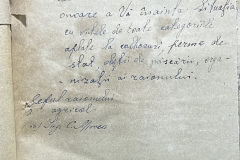 onoare a Vă înainta situația
cu vitele de toate categoriile
aflate la colhozuri, ferme de
stat, și
nizații ai raionului.
Șeful raionului
agricol